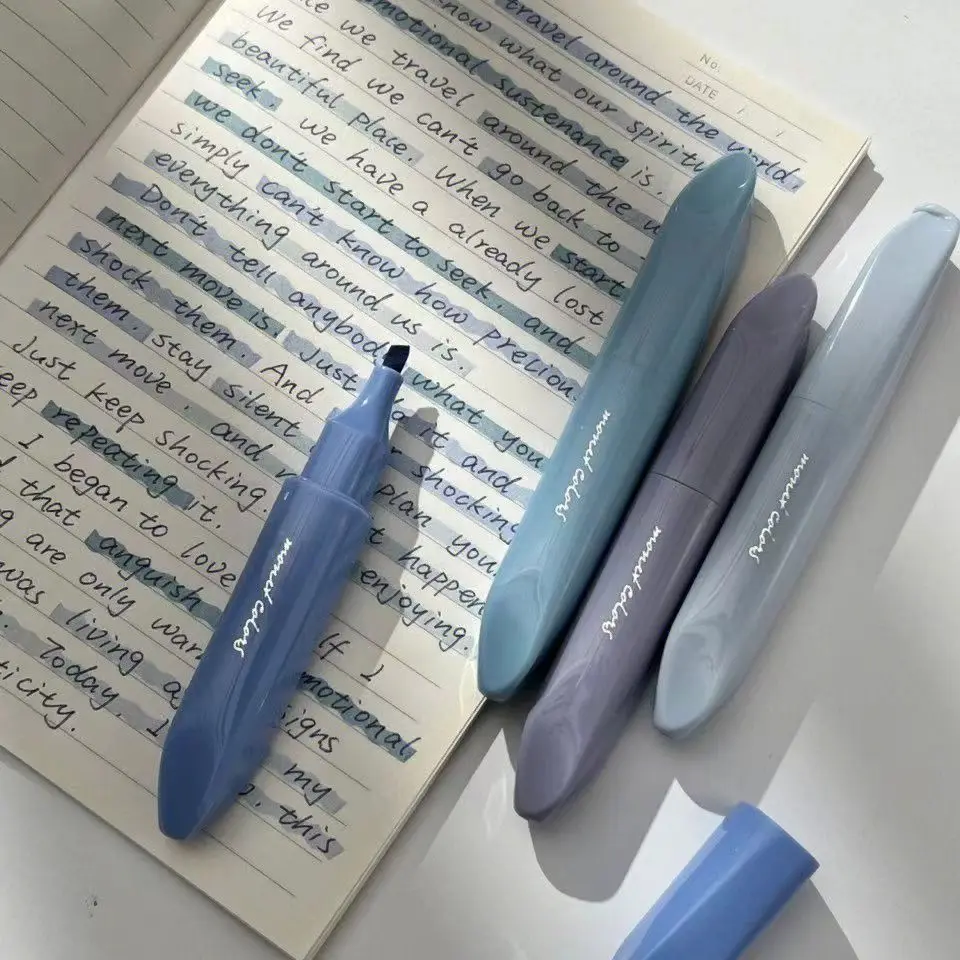 No.
DATE / /
travel around the world.
know what our spirity
emotional sustenance is
we travel around the
We find we can't go back to
beautiful place. When we start
seek, we have a already lost
we don't start to seek, and
simply can't know how
everything around us is.
Don't tell anybody what you
next move is. Just it and
shock them. And shocking
them. stay silent plan your
next move, and happen
Just keep shocking. enjoying.
repeating it.
I began to love If I
that anguish emotional
are only
was living my
Today, I this
monet colors
monet colors
monet colors
monet colors